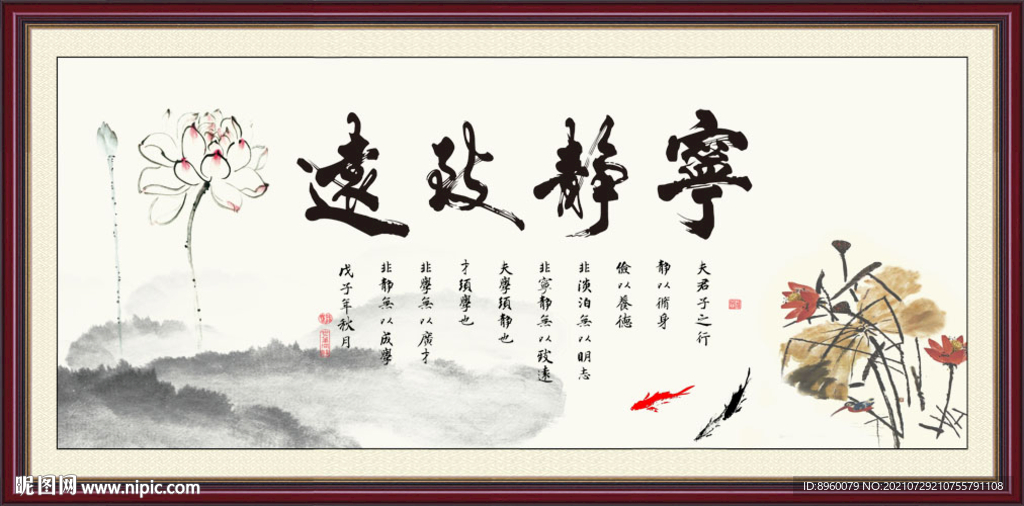 寧靜致遠
夫君子之行
靜以脩身
儉以養德
非淡泊無以明志
非寧靜無以致遠
夫學須靜也
才須學也
非學無以廣才
非靜無以成學
戊子年秋月
昵图网 www.nipic.com
ID:8960079 NO:20210729210755791108